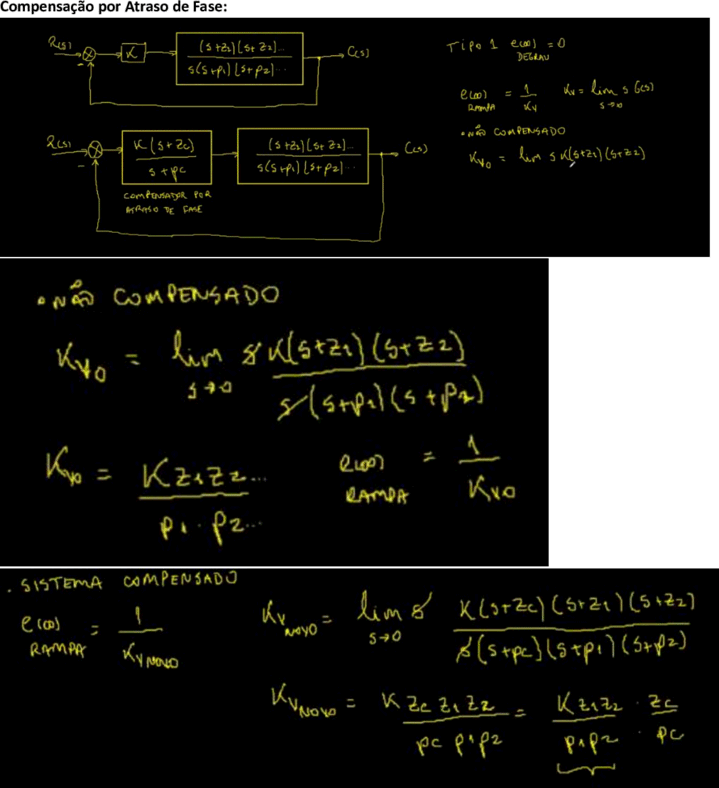 Compensação por Atraso de Fase:
R(s) K (s+z1)(s+z2)... / s(s+p1)(s+p2)... C(s)
-
TIPO 1 e(∞) = 0
DEGRAU
e(∞) = 1/Kv Kv = lim s G(s)
RAMPA s→0
• NÃO COMPENSADO
Kv0 = lim s K(s+z1)(s+z2)
R(s) K(s+zc) / s+pc (s+z1)(s+z2)... / s(s+p1)(s+p2)... C(s)
-
COMPENSADOR POR
ATRASO DE FASE
• NÃO COMPENSADO
Kv0 = lim s K(s+z1)(s+z2)
s→0 s(s+p1)(s+p2)
Kv0 = K z1 z2... / p1 . p2... e(∞) = 1 / Kv0
RAMPA
. SISTEMA COMPENSADO
e(∞) = 1 / Kv NOVO
RAMPA
Kv NOVO = lim s K(s+zc)(s+z1)(s+z2)
s→0 s(s+pc)(s+p1)(s+p2)
Kv NOVO = K zc z1 z2 / pc p1 p2 = K z1 z2 / p1 p2 . zc / pc